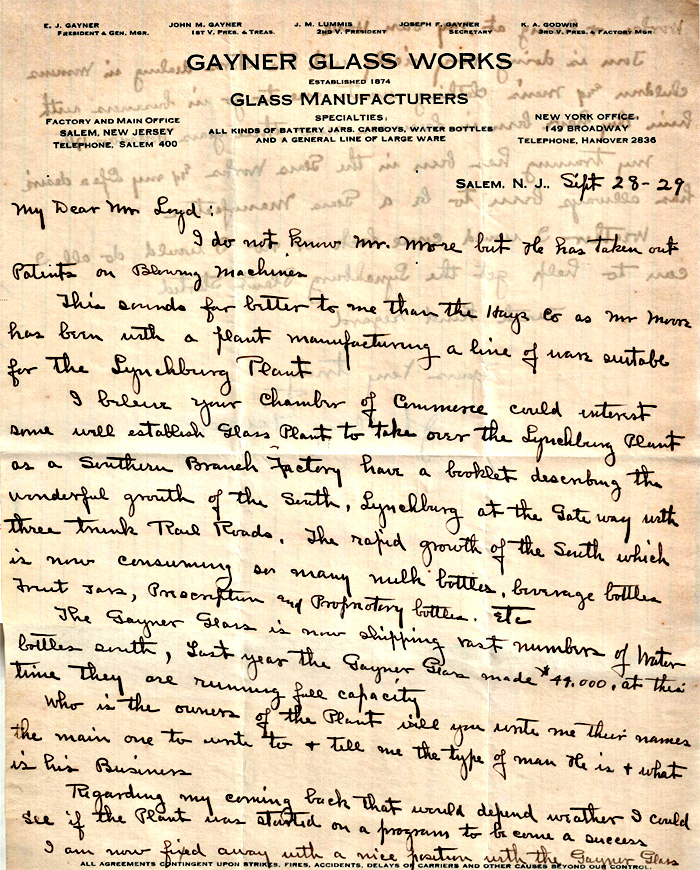 E. J. GAYNER JOHN M. GAYNER J. M. LUMMIS JOSEPH F. GAYNER K. A. GODWIN
PRESIDENT & GEN. MGR. 1ST V. PRES. & TREAS. 2ND V. PRESIDENT SECRETARY 3RD V. PRES. & FACTORY MGR.
GAYNER GLASS WORKS
ESTABLISHED 1874
GLASS MANUFACTURERS
FACTORY AND MAIN OFFICE
SALEM, NEW JERSEY
TELEPHONE, SALEM 400
SPECIALTIES:
ALL KINDS OF BATTERY JARS, CARBOYS, WATER BOTTLES
AND A GENERAL LINE OF LARGE WARE
NEW YORK OFFICE:
149 BROADWAY
TELEPHONE, HANOVER 2836
SALEM, N. J., Sept 28-29
My Dear Mr Loyd:
I do not know Mr. More but He has taken out
Patents on Blowing Machines
This sounds far better to me than the Hays Co as Mr Moore
has been with a plant manufacturing a line of ware suitabe
for the Lynchburg Plant
I believe your Chamber of Commerce could interest
some well establish Glass Plant to take over the Lynchburg Plant
as a Southern Branch Factory have a booklet describing the
wonderful growth of the South, Lynchburg at the Gate way with
three trunk Rail Roads. The rapid growth of the South which
is now consuming so many milk bottles, beverage bottles
Fruit Jars, Prescription and Proprietory bottles. Etc
The Gayner Glass is now shipping vast numbers of Water
bottles south, Last year the Gayner Glass made $44.000, at this
time they are running full capacity
Who is the owners of the Plant will you write me their names
the main one to write to + tell me the type of man He is + what
is his Business
Regarding my coming back that would depend weather I could
see if the Plant was started on a program to become a success
I am now fixed away with a nice position with the Gayner Glass
ALL AGREEMENTS CONTINGENT UPON STRIKES, FIRES, ACCIDENTS, DELAYS OF CARRIERS AND OTHER CAUSES BEYOND OUR CONTROL.